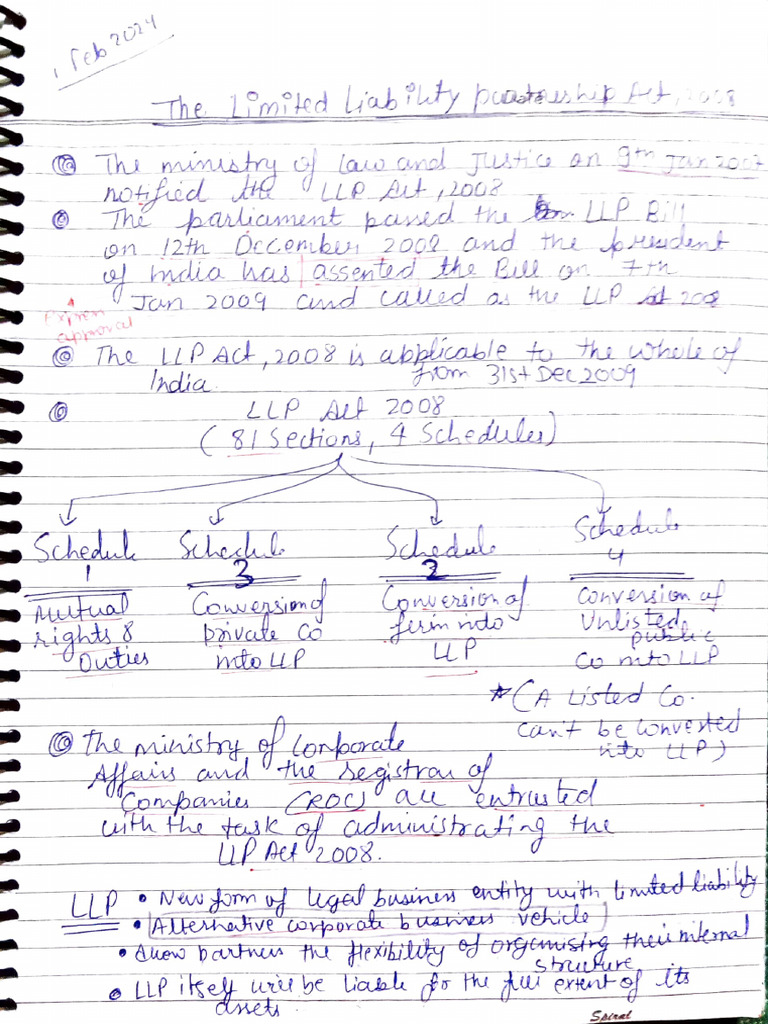 1 Feb 2024
The Limited Liability partnership Act, 2008
The ministry of Law and Justice on 9th Jan 2009
notified the LLP Act, 2008
The parliament passed the LLP Bill
on 12th December 2008 and the president
of India has assented the Bill on 7th
Jan 2009 and called as the LLP Act 2008
Express
approval
The LLP Act, 2008 is applicable to the whole of
India. from 31st Dec 2009
LLP Act 2008
(81 Sections, 4 Schedules)
Schedule 1
Schedule 3
Schedule 2
Schedule 4
Mutual
rights &
Duties
Conversion of
private Co
into LLP
Conversion of
firm into
LLP
Conversion of
Unlisted
public
Co into LLP
* (A Listed Co.
can't be converted
into LLP)
The ministry of Corporate
Affairs and the registrar of
Companies (ROC) are entrusted
with the task of administrating the
LLP Act 2008.
LLP • New form of legal business entity with limited liability
• Alternative corporate business vehicle
• Allow partners the flexibility of organising their internal
structure
• LLP itself will be liable for the full extent of its
assets
Spiral